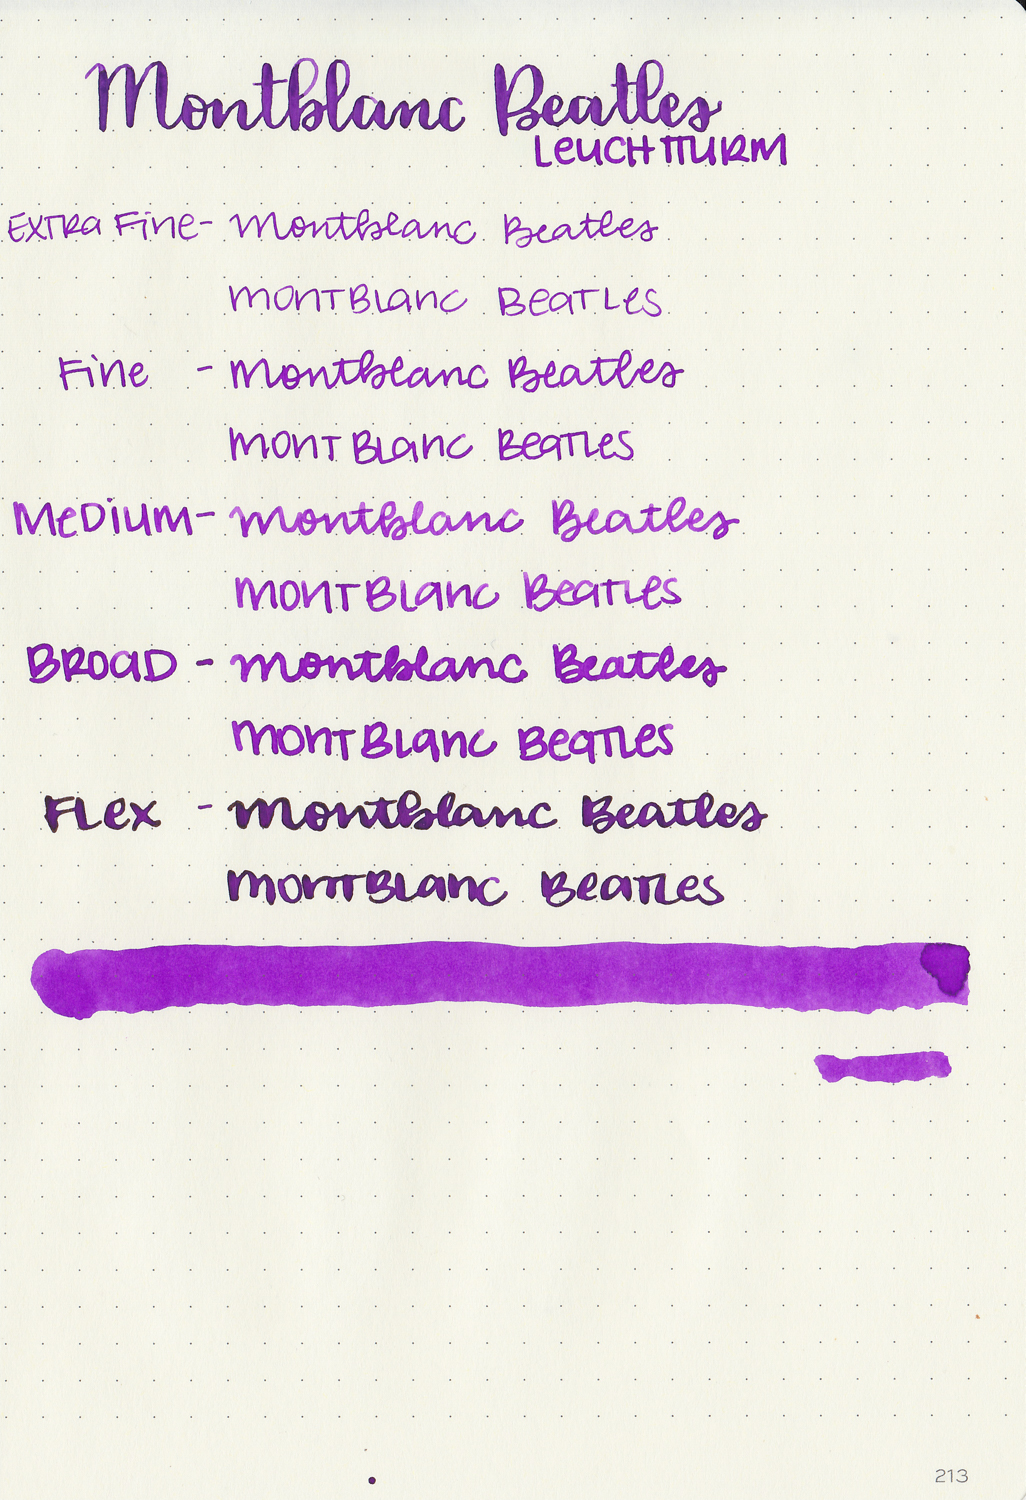 Montblanc Beatles
LEUCHTTURM
EXTRA FINE - Montblanc Beatles
MONTBLANC BEATLES
FINE - Montblanc Beatles
MONTBLANC BEATLES
MEDIUM - Montblanc Beatles
MONTBLANC BEATLES
BROAD - Montblanc Beatles
MONTBLANC BEATLES
FLEX - Montblanc Beatles
MONTBLANC BEATLES
213